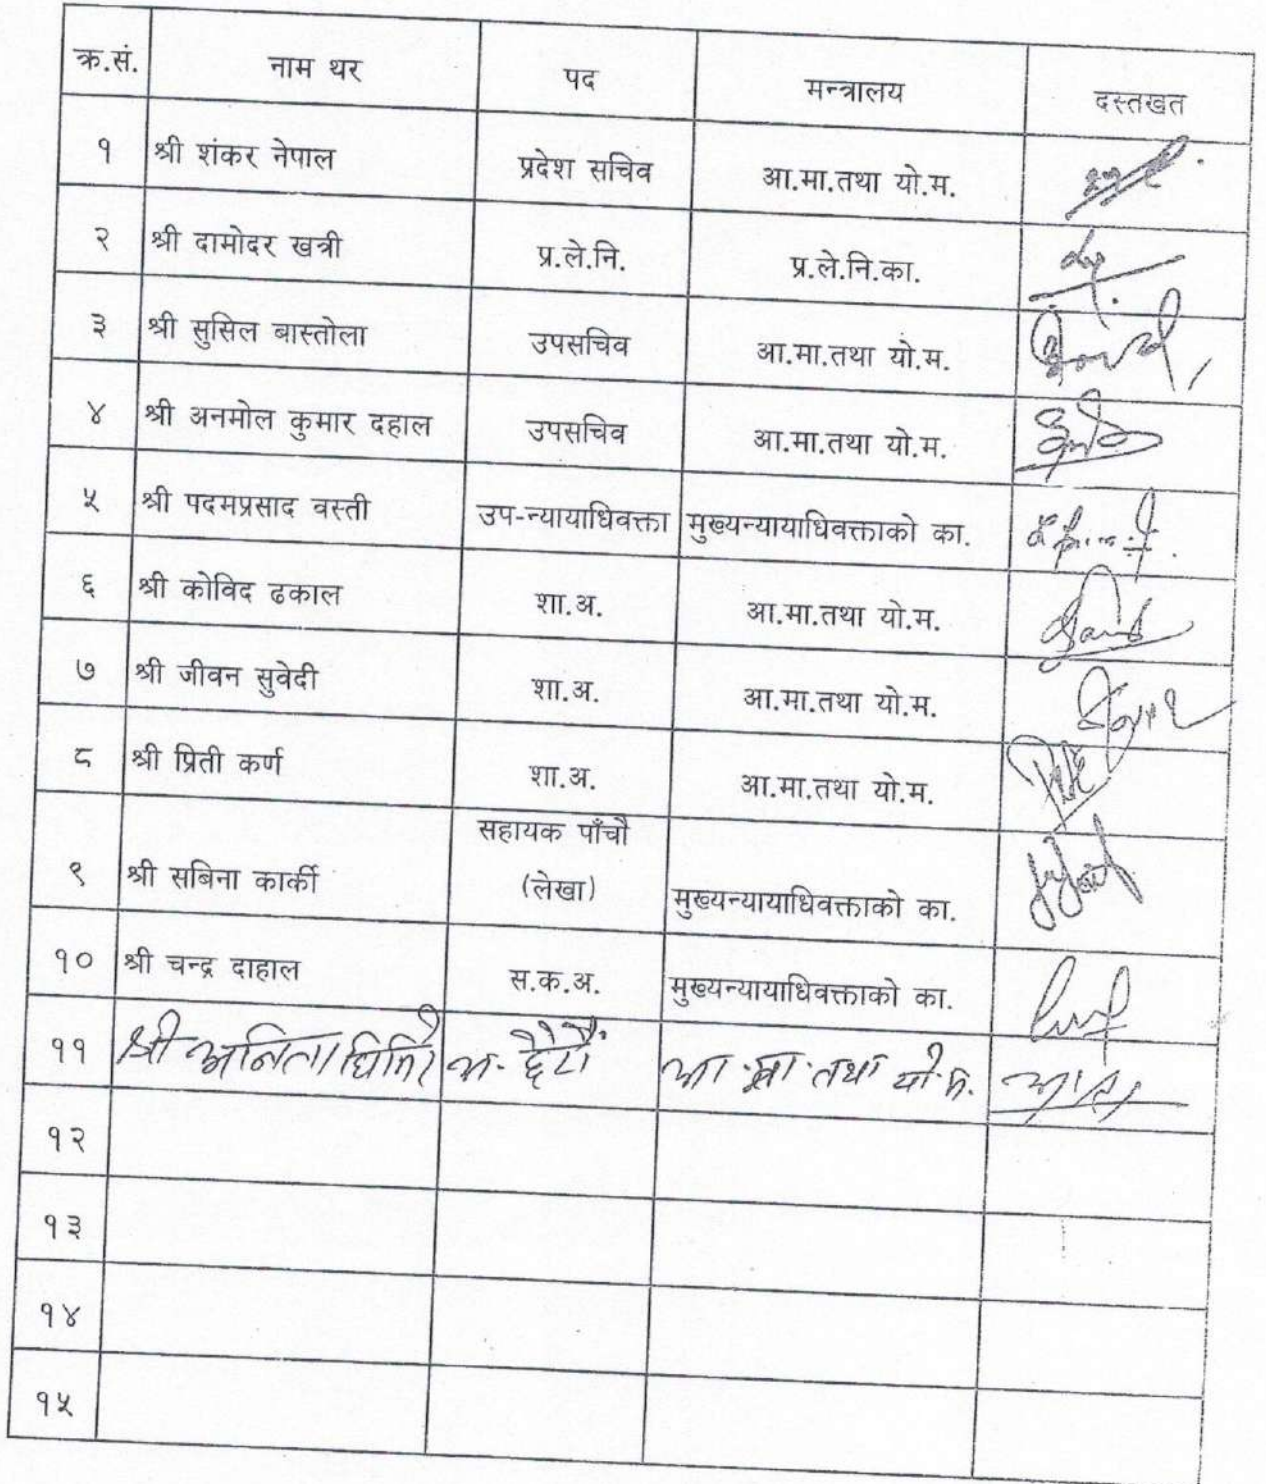 क्र.सं. नाम थर पद मन्त्रालय दस्तखत
१ श्री शंकर नेपाल प्रदेश सचिव आ.मा.तथा यो.म.
२ श्री दामोदर खत्री प्र.ले.नि. प्र.ले.नि.का.
३ श्री सुसिल बास्तोला उपसचिव आ.मा.तथा यो.म.
४ श्री अनमोल कुमार दहाल उपसचिव आ.मा.तथा यो.म.
५ श्री पदमप्रसाद वस्ती उप-न्यायाधिवक्ता मुख्यन्यायाधिवक्ताको का.
६ श्री कोविद ढकाल शा.अ. आ.मा.तथा यो.म.
७ श्री जीवन सुवेदी शा.अ. आ.मा.तथा यो.म.
८ श्री प्रिती कर्ण शा.अ. आ.मा.तथा यो.म.
सहायक पाँचौ
९ श्री सबिना कार्की (लेखा) मुख्यन्यायाधिवक्ताको का.
१० श्री चन्द्र दाहाल स.क.अ. मुख्यन्यायाधिवक्ताको का.
११ श्री अनिता घिमिरे अ. छैटौं आ.मा.तथा यो.म.
१२
१३
१४
१५